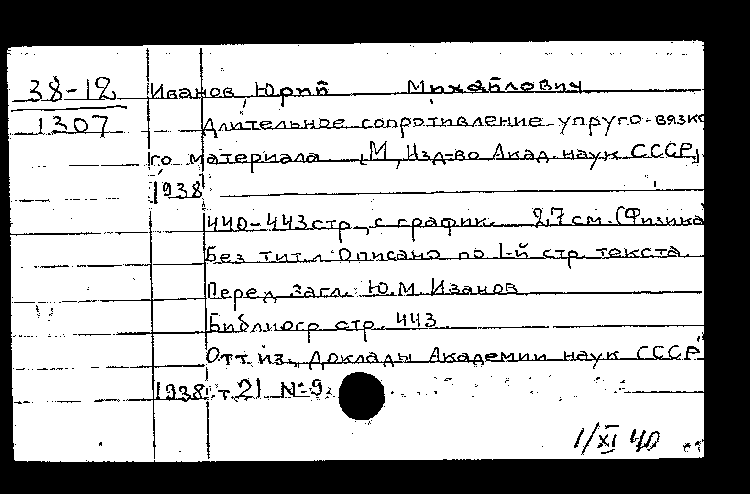 38-12
1307
Иванов, Юрий Михайлович
Длительное сопротивление упруго-вязко
го материала [М, Изд-во Акад. наук СССР],
1938
440-443 стр., с график. 27 см. (Физика)
Без тит. л. Описано по 1-й стр. текста.
Перед загл.: Ю.М. Иванов
Библиогр. стр. 443.
Отт. из „Доклады Академии наук СССР"
1938, т. 21 № 9.
1/XI 40